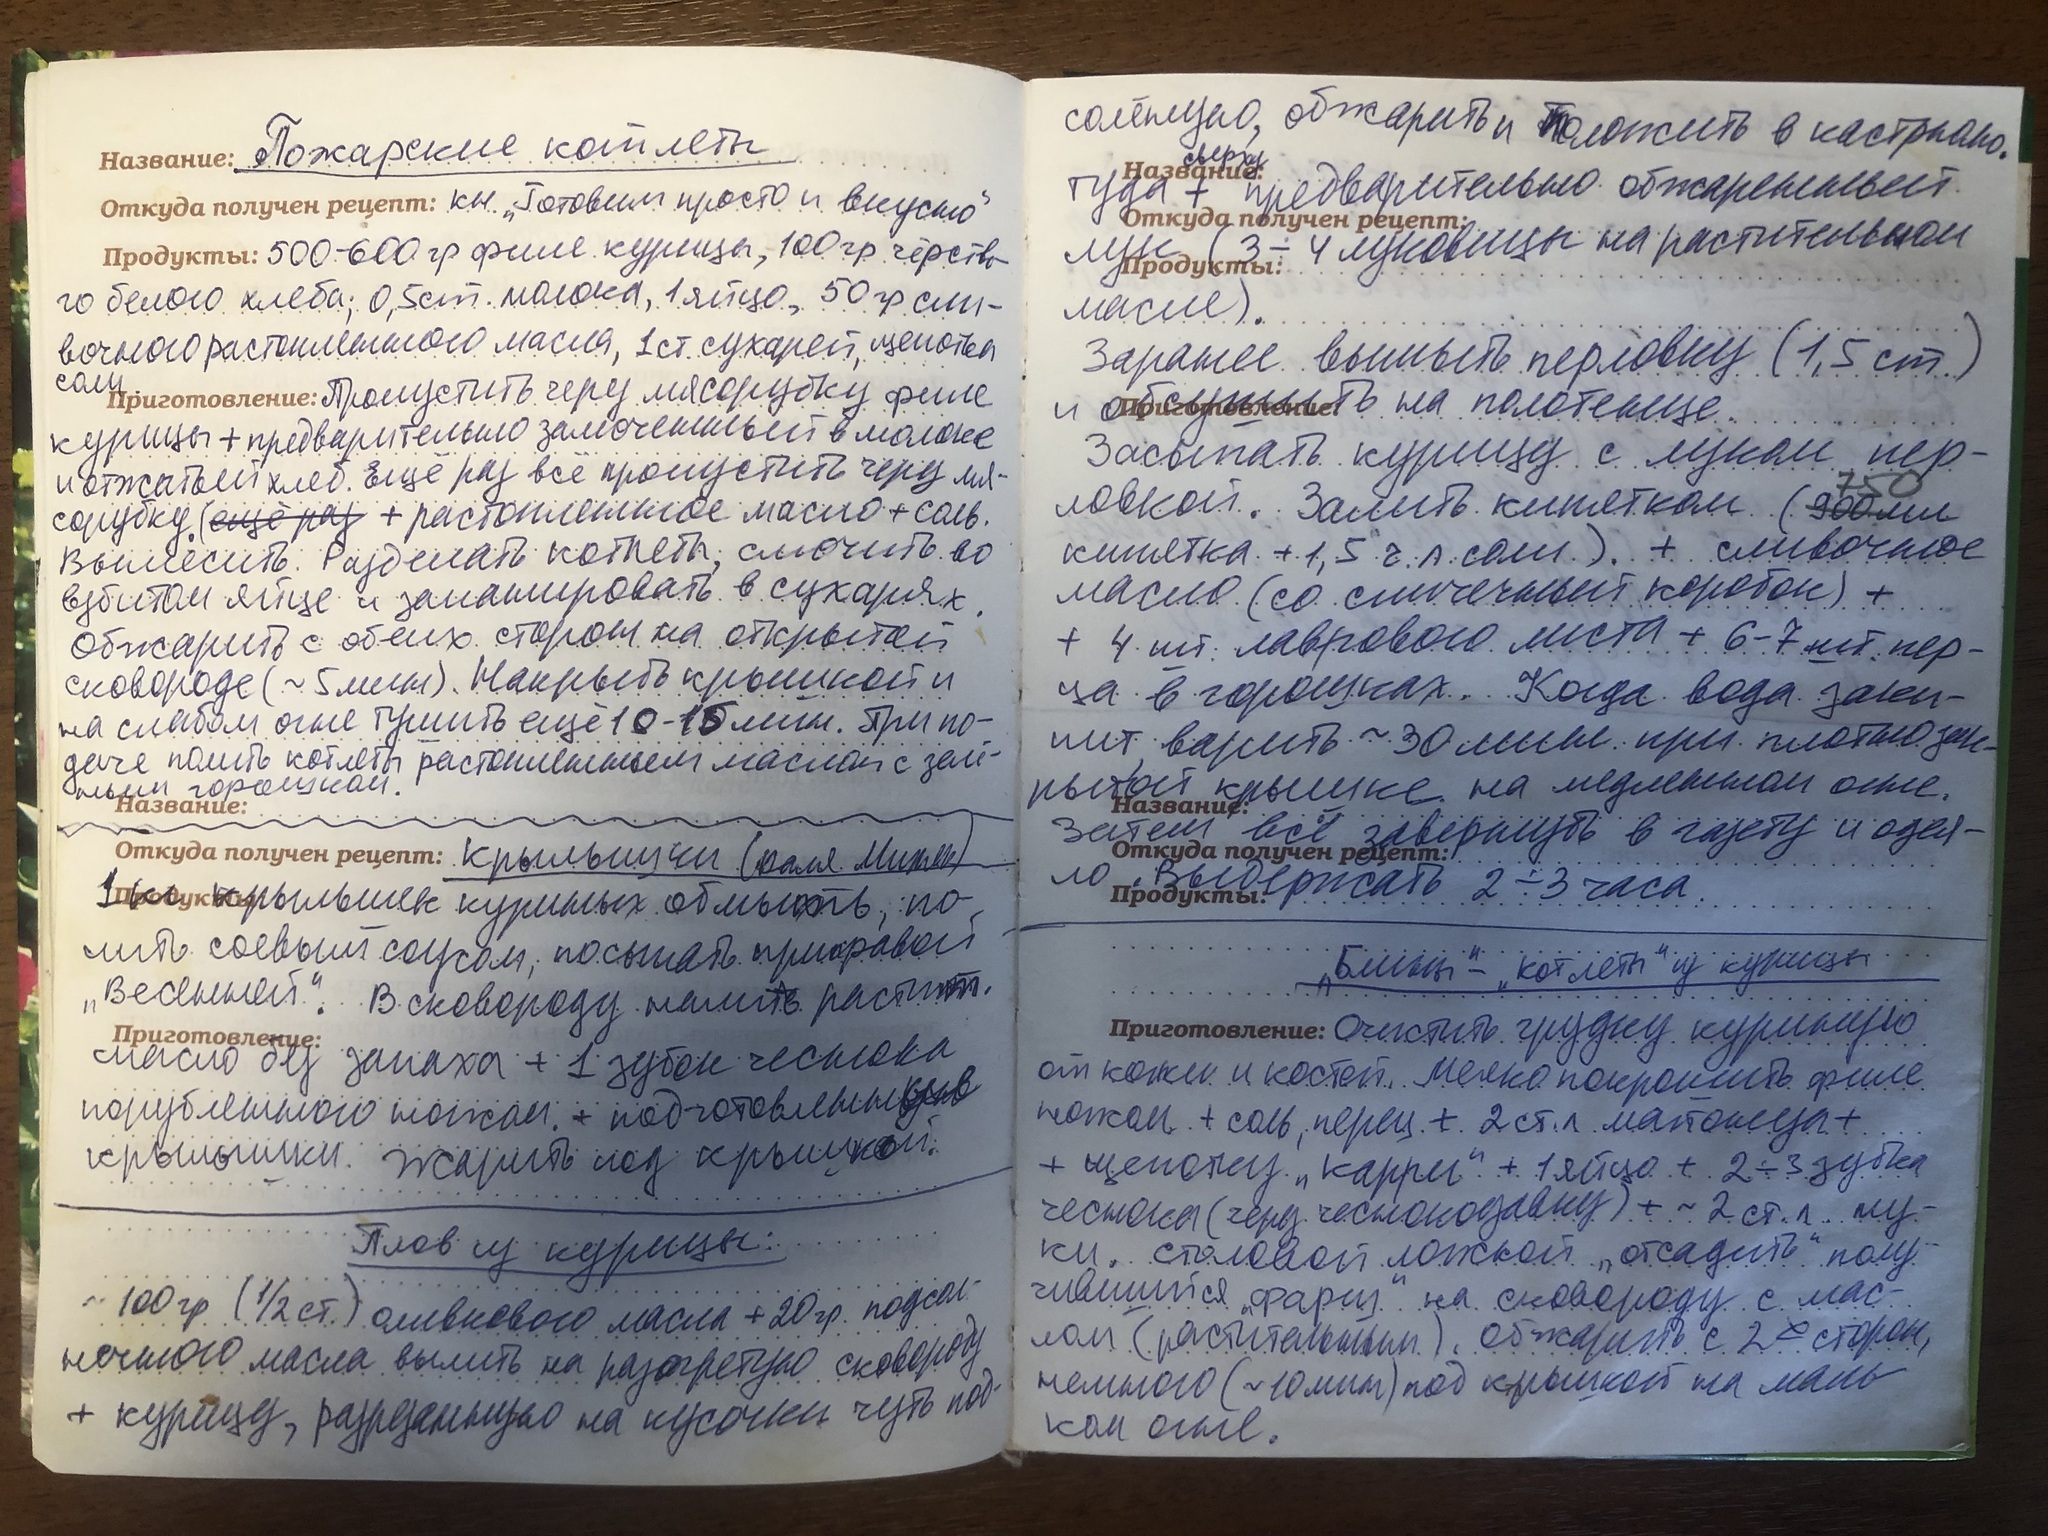 Название: Пожарские котлеты
Откуда получен рецепт: кн. „Готовим просто и вкусно"
Продукты: 500-600 гр филе курицы, 100 гр чёрство-
го белого хлеба; 0,5 ст. молока, 1 яйцо, 50 гр сли-
вочного растопленного масла, 1 ст. сухарей, щепотка
соли.
Приготовление: Пропустить через мясорубку филе
курицы + предварительно замоченный в молоке
и отжатый хлеб. Ещё раз всё пропустить через мя-
сорубку. (ещё раз + растопленное масло + соль.
Вымесить. Разделать котлеты, смочить во
взбитом яйце и запанировать в сухарях.
Обжарить с обеих сторон на открытой
сковороде (~ 5 мин). Накрыть крышкой и
на слабом огне тушить ещё 10-15 мин. При по-
даче полить котлеты растопленным маслом с зелё-
ным горошком.
Название:
Откуда получен рецепт: Крылышки (
Продукты: 1 кг крылышек куриных обмыть, по-
лить соевым соусом, посыпать приправой
„Весенней". В сковороду налить растит.
Приготовление:
масло без запаха + 1 зубок чеснока
порубленного ножом. + подготовленные
крылышки. Жарить под крышкой.
Плов из курицы:
~ 100 гр (1/2 ст.) оливкового масла + 20 гр. подсол-
нечного масла вылить на разогретую сковороду
+ курицу, разрезанную на кусочки чуть под-
соленную, обжарить и положить в кастрюлю.
Название: сверху
туда + предварительно обжаренный
Откуда получен рецепт:
лук (3÷4 луковицы на растительном
Продукты:
масле).
Заранее вымыть перловку (1,5 ст.)
и обсушить на полотенце.
Приготовление:
Засыпать курицу с луком пер-
ловкой. Залить кипятком (900 мл 750
кипятка + 1,5 ч.л. соли). + сливочное
масло (со спичечный коробок) +
+ 4 шт. лаврового листа + 6-7 шт. пер-
ца в горошках. Когда вода заки-
пит, варить ~ 30 мин. при плотно зак-
рытой крышке на медленном огне.
Название:
Затем всё завернуть в газету и одея-
Откуда получен рецепт:
ло. Выдержать 2÷3 часа.
Продукты:
„Блины" - „котлеты" из курицы
Приготовление: Очистить грудку куриную
от кожи и костей. Мелко покрошить филе
ножом. + соль, перец + 2 ст.л майонеза +
+ щепотку „карри" + 1 яйцо + 2÷3 зубка
чеснока (через чеснокодавку) + ~ 2 ст.л. му-
ки. столовой ложкой „отсадить" полу-
чившийся „фарш" на сковороду с мас-
лом (растительным). обжарить с 2х сторон,
немного (~ 10 мин) под крышкой на малень
ком огне.